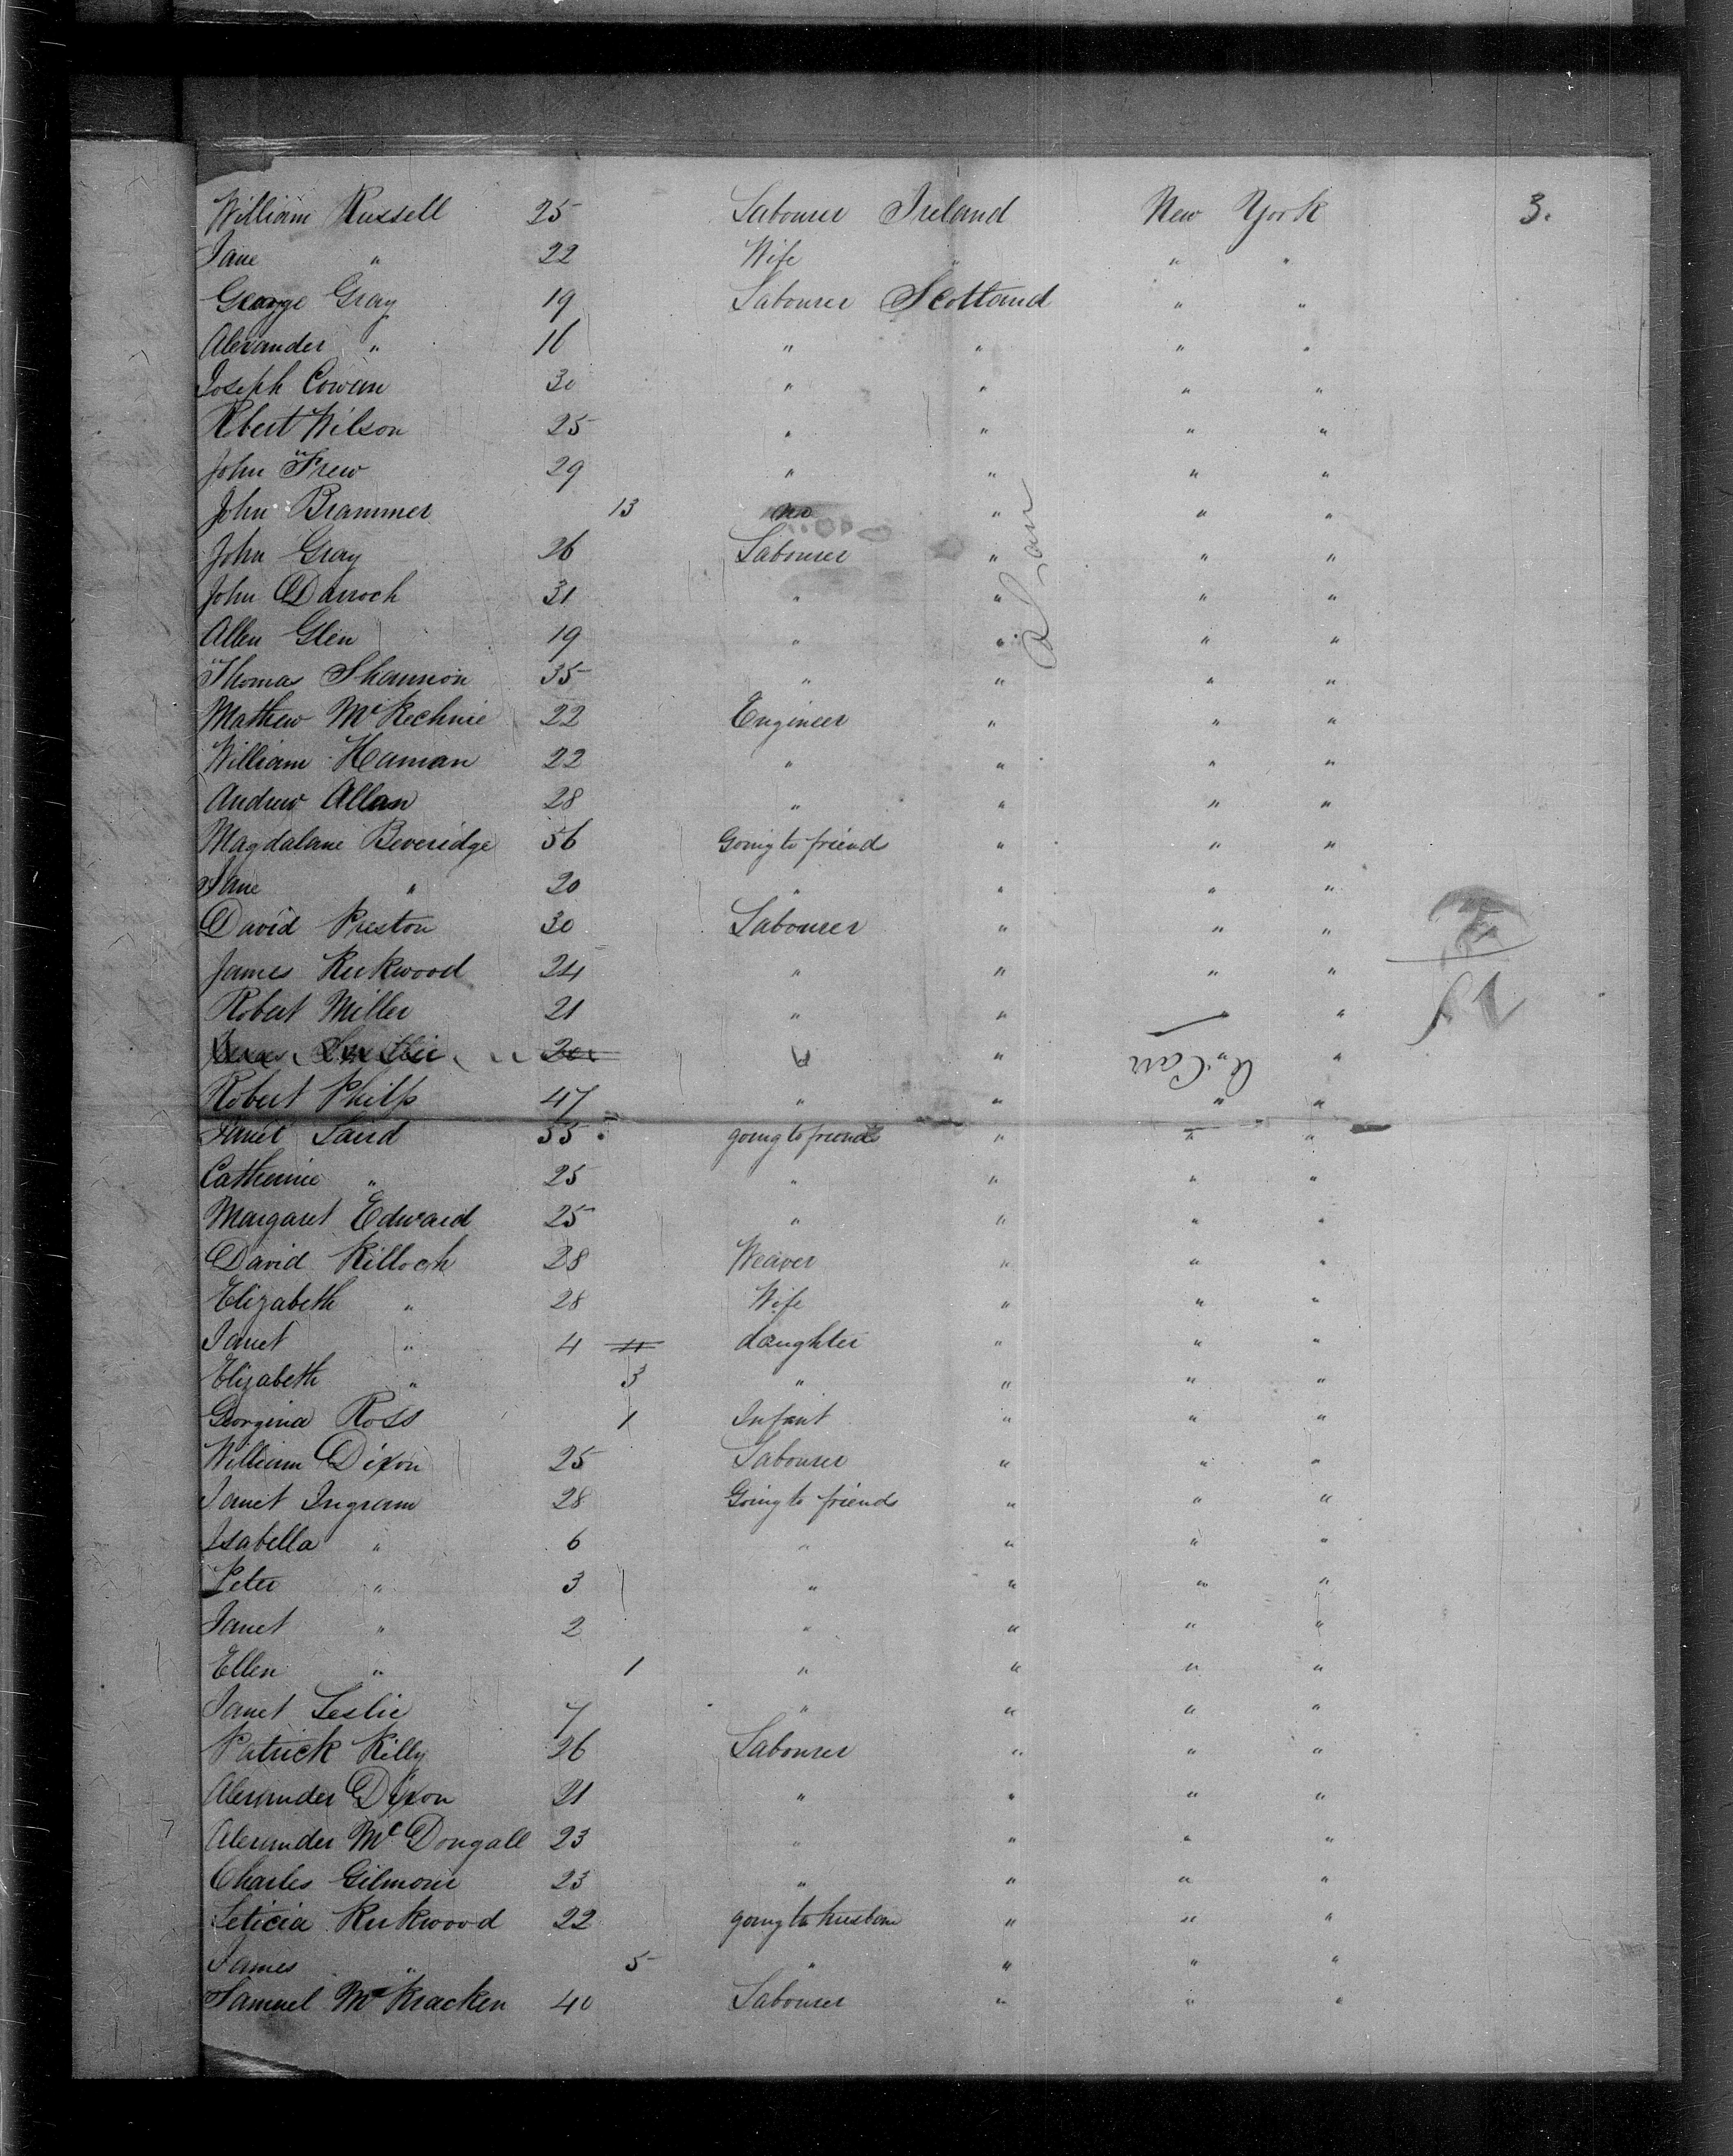 William Russell 25 Labourer Ireland New York 3.
Jane " 22 Wife " " "
George Gray 19 Labourer Scotland " "
Alexander " 16 " " " "
Joseph Cowan 30 " " " "
Robert Wilson 25 " " " "
John Frew 29 " " " "
John Brammer 13 no " " "
John Gray 26 Labourer " " "
John Darroch 31 " " " "
Allen Glen 19 " " " "
Thomas Shannon 35 " " " "
Mathew McKechnie 22 Engineer " " "
William Haman 22 " " " "
Andrew Allan 28 " " " "
Magdalane Beveridge 56 Going to friends " " "
Jane " 20 " " " "
David Preston 30 Labourer " " "
James Kirkwood 24 " " " "
Robert Miller 21 " " " "
20 " " "
Robert Philp 47 " " " "
Janet Laird 55 going to friends " " "
Catherine " 25 " " " "
Margaret Edward 25 " " " "
David Killoch 28 Weaver " " "
Elizabeth " 28 Wife " " "
Janet " 4 11 daughter " " "
Elizabeth " 3 " " " "
Georgina Ross 1 Infant " " "
William Dixon 25 Labourer " " "
Janet Ingram 28 Going to friends " " "
Isabella " 6 " " " "
Peter " 3 " " " "
Janet " 2 " " " "
Ellen " 1 " " " "
Janet Leslie 7 " " " "
Patrick Killy 26 Labourer " " "
Alexander Dixon 21 " " " "
Alexander McDougall 23 " " " "
Charles Gilmour 23 " " " "
Leticia Kirkwood 22 going to husban " " "
James " 5 " " " "
Samuel McKracken 40 Labourer " " "